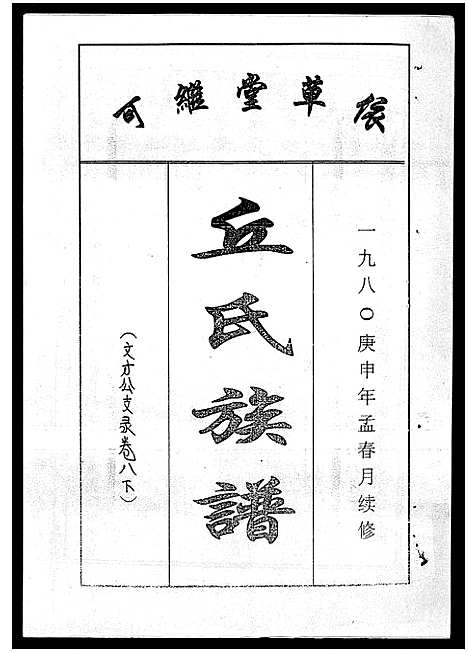 草堂維
一九八〇庚申年孟春月续修
丘氏族譜
(文才公支录卷八下)